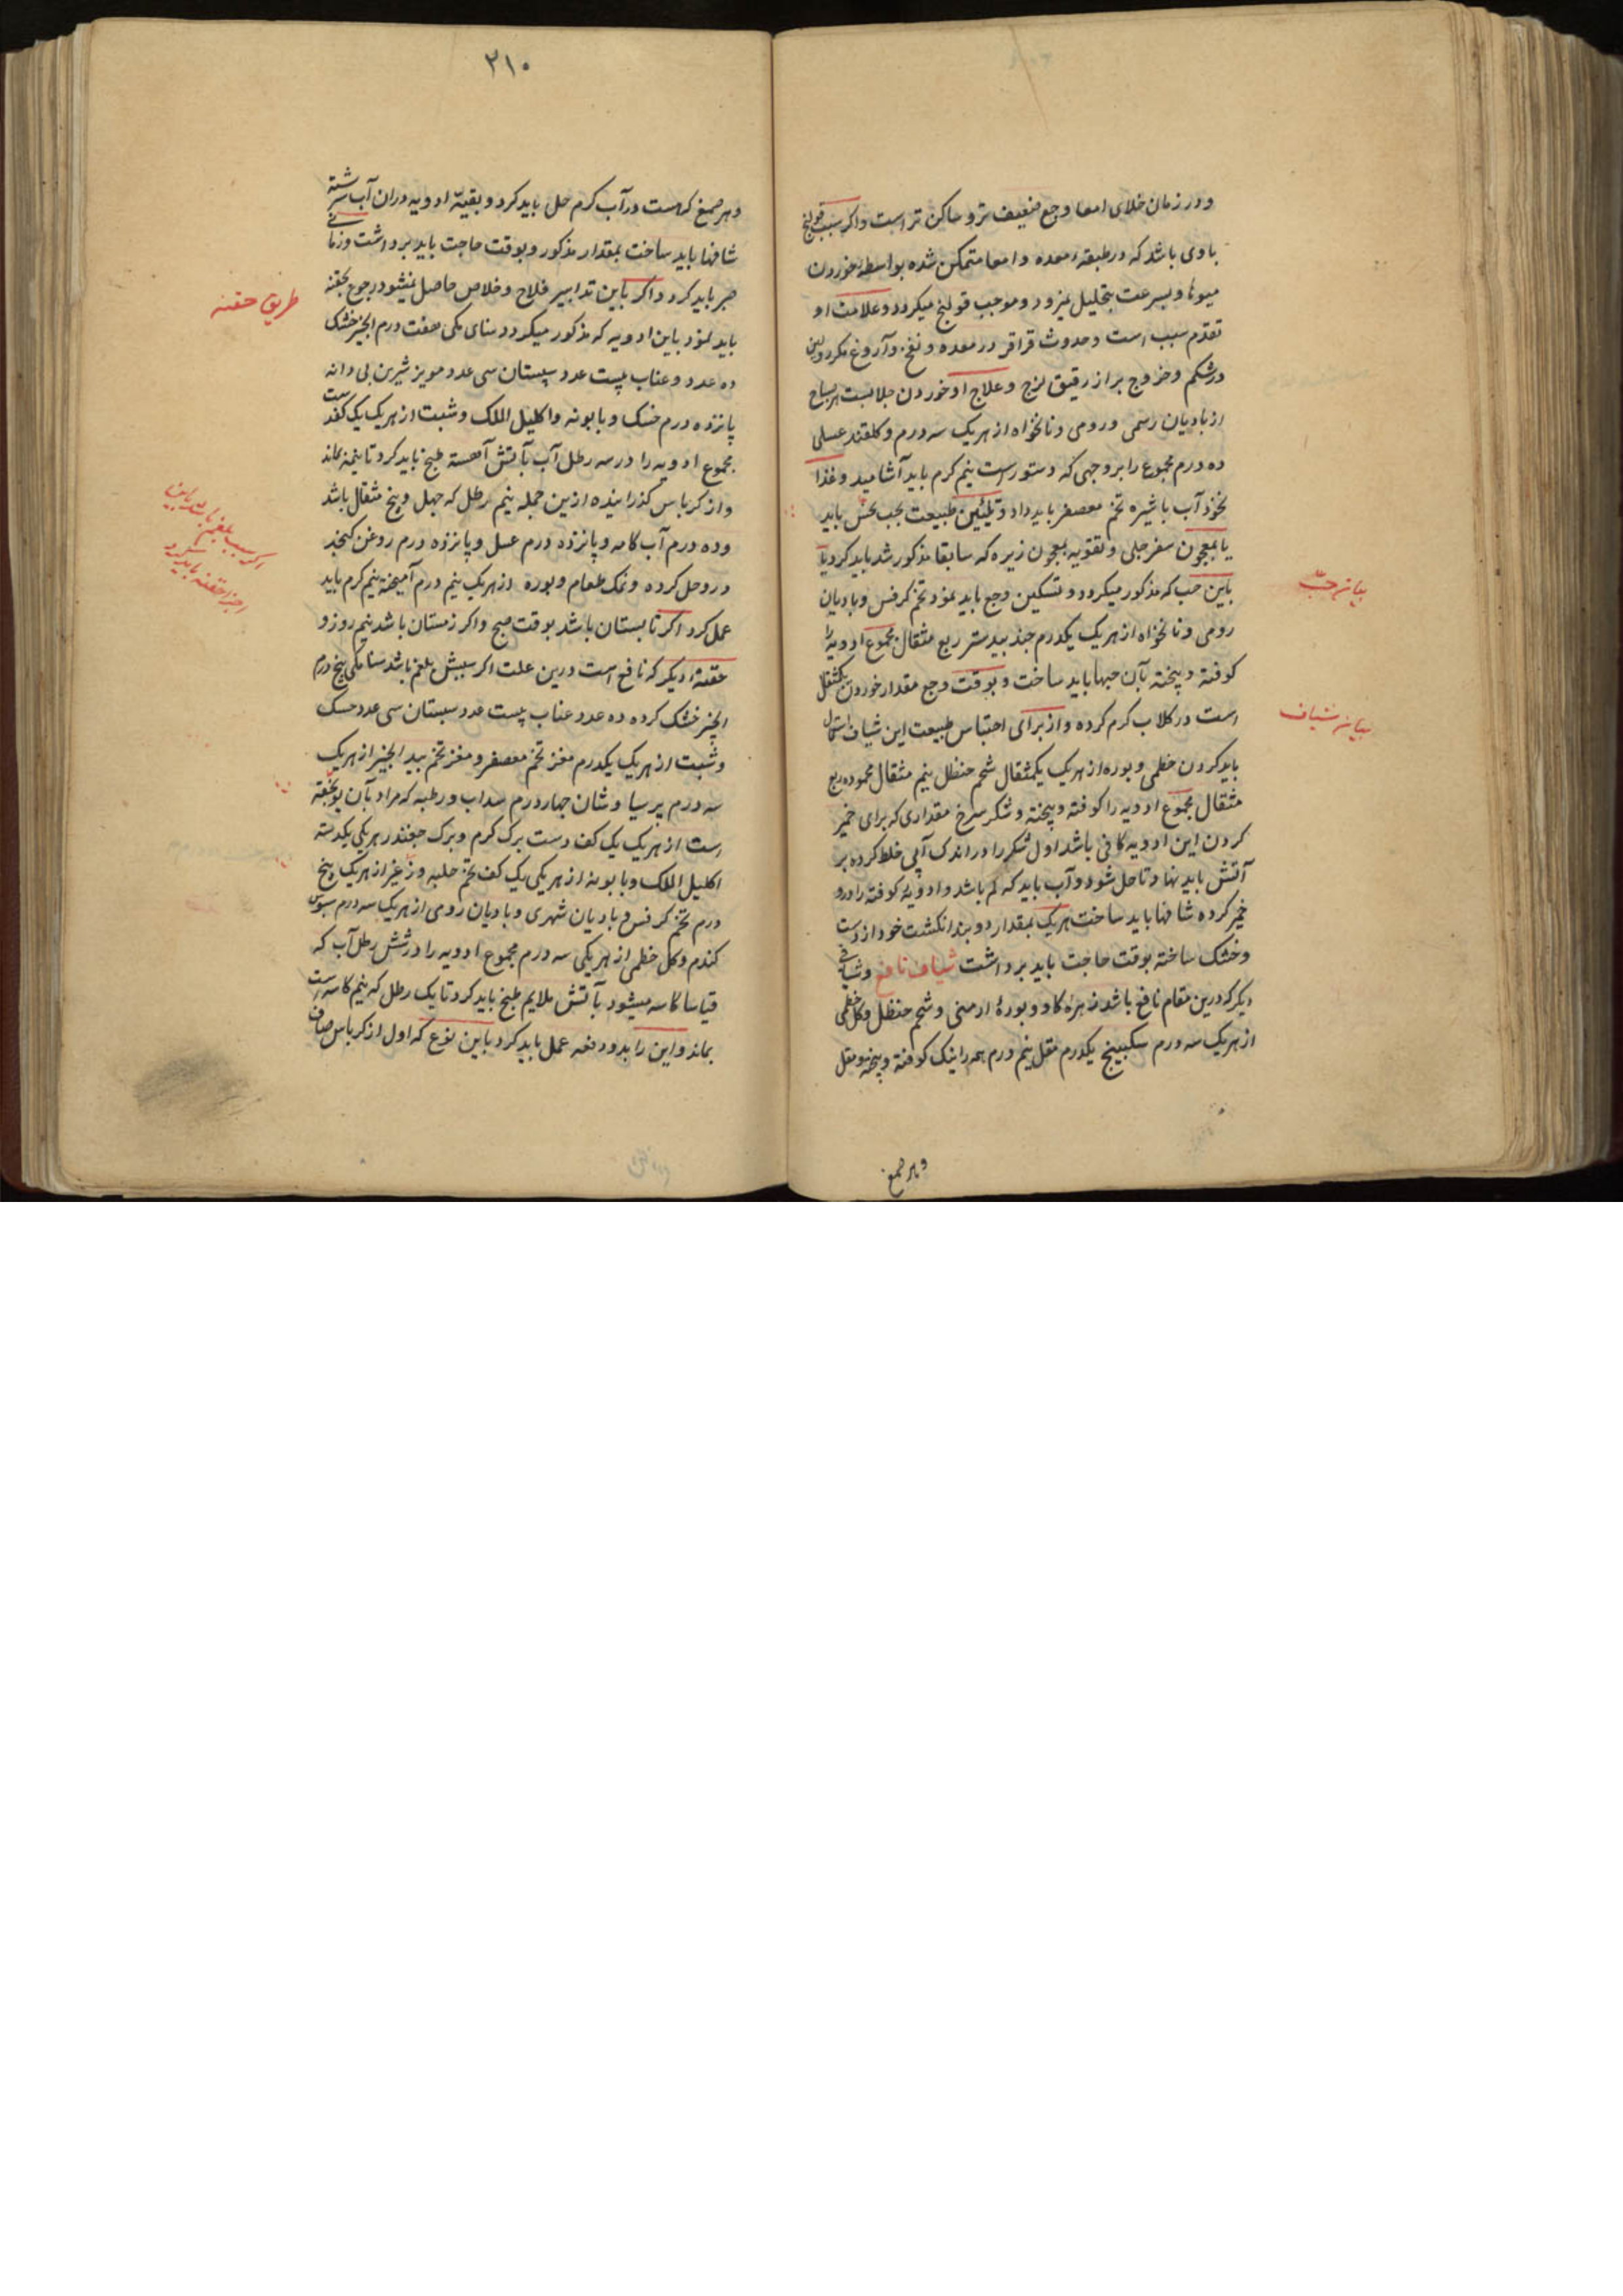 ودر زمان خلای امعا وجع ضعیف تر و ساکن تر است واکر سبب قولنج
بادی باشد که در طبقهٔ معده و امعا متمکن شده بواسطهٔ خوردن
میوها وبسرعت بتحلیل نمیرود وموجب قولنج میکردد وعلامت او
تقدم سبب است وحدوث قراقر در معده ونفخ وآروغ
درشکم وخروج براز رقیق لزج وعلاج او خوردن جلابست هر صباح
از بادیان رسمی ورومی ونانخواه از هریک سه درم وکلقند عسلی
ده درم مجموع را بر وجهی که دستور است نیم کرم باید آشامید وغذا
نخودآب با شیره تخم معصفر باید داد وتلیین طبیعت بحب باید
یا بمعجون سفرجلی وتقویه بمعجون زیره که سابقا مذکور شد باید کرد یا
باین حب که مذکور میکردد وتسکین وجع باید نمود تخم کرفس وبادیان
رومی ونانخواه از هریک یکدرم جند بیدستر ربع مثقال مجموع ادویه را
کوفته وپخته بآن حبها باید ساخت وبوقت وجع مقدار خوردن یکمثقال
است در کلاب کرم کرده واز برای احتباس طبیعت این شیاف استعمال
باید کردن خطمی وبوره از هریک یکمثقال شحم حنظل نیم مثقال محموده ربع
مثقال مجموع ادویه را کوفته وپخته وشکر سرخ مقداری که برای خمیر
کردن این ادویه کافی باشد اول شکر را در اندک آبی خلط کرده بر
آتش باید نهاد تا حل شود وآب باید که کم باشد وادویهٔ کوفته را درو
خمیر کرده شافها باید ساخت هریک بمقدار دو بند انکشت خود از دست
وخشک ساخته بوقت حاجت باید برداشت شیاف نافع وشیافی
دیکر که درین مقام نافع باشد زهرهٔ کاو وبورهٔ ارمنی وشحم حنظل وکل خطمی
از هریک سه درم سکبینج یکدرم مقل نیم درم همه را نیک کوفته وپخته ومقل
وهر صمغ
بیان حبّ
بیان شیاف
۲۱۰
وهر صمغ که هست در آب کرم حل باید کرد وبقیهٔ ادویه دران آب سرشته
شافها باید ساخت بمقدار مذکور وبوقت حاجت باید برداشت وزمانی
صبر باید کرد واکر باین تدابیر فلاح وخلاص حاصل نمیشود رجوع بحقنه
باید نمود باین ادویه که مذکور میکردد سنای مکی هفت درم انجیر خشک
ده عدد وعناب بیست عدد سپستان سی عدد مویز شیرین بی دانه
پانزده درم خسک وبابونه واکلیل الملک وشبت از هریک یک کفدست
مجموع ادویه را در سه رطل آب بآتش آهسته طبخ باید کرد تا بنیمه بماند
واز کرباس کذرانیده ازین جمله نیم رطل که چهل وپنج مثقال باشد
وده درم آب کامه وپانزده درم عسل وپانزده درم روغن کنجد
درو حل کرده ونمک طعام وبوره از هریک نیم درم آمیخته نیم کرم باید
عمل کرد اکر تابستان باشد بوقت صبح واکر زمستان باشد نیم روز و
حقنهٔ دیکر که نافع است درین علت اکر سببش بلغم باشد سنا مکی پنج درم
انجیر خشک کرده ده عدد عناب بیست عدد سبستان سی عدد خسک
وشبت از هریک یکدرم مغز تخم معصفر ومغز تخم بید انجیر از هریک
سه درم پرسیاوشان چهار درم سداب ورطبه که مراد بآن یونجه
است از هریک یک کف دست برک کرم وبرک چغندر هریکی یکدسته
اکلیل الملک وبابونه از هریکی یک کف تخم حلبه از هریک پنج
درم تخم کرفس وبادیان شهری وبادیان رومی از هریک سه درم سبوس
کندم وکل خطمی از هریکی سه درم مجموع ادویه را در شش رطل آب که
قیاسا کاسه میشود بآتش ملایم طبخ باید کرد تا یک رطل که نیم کاسه است
بماند واین را بدو دفعه عمل باید کرد باین نوع که اول از کرباس صاف
طریق حقنه
اکر سبب بلغم باشد باین
اجزا حقنه باید کرد